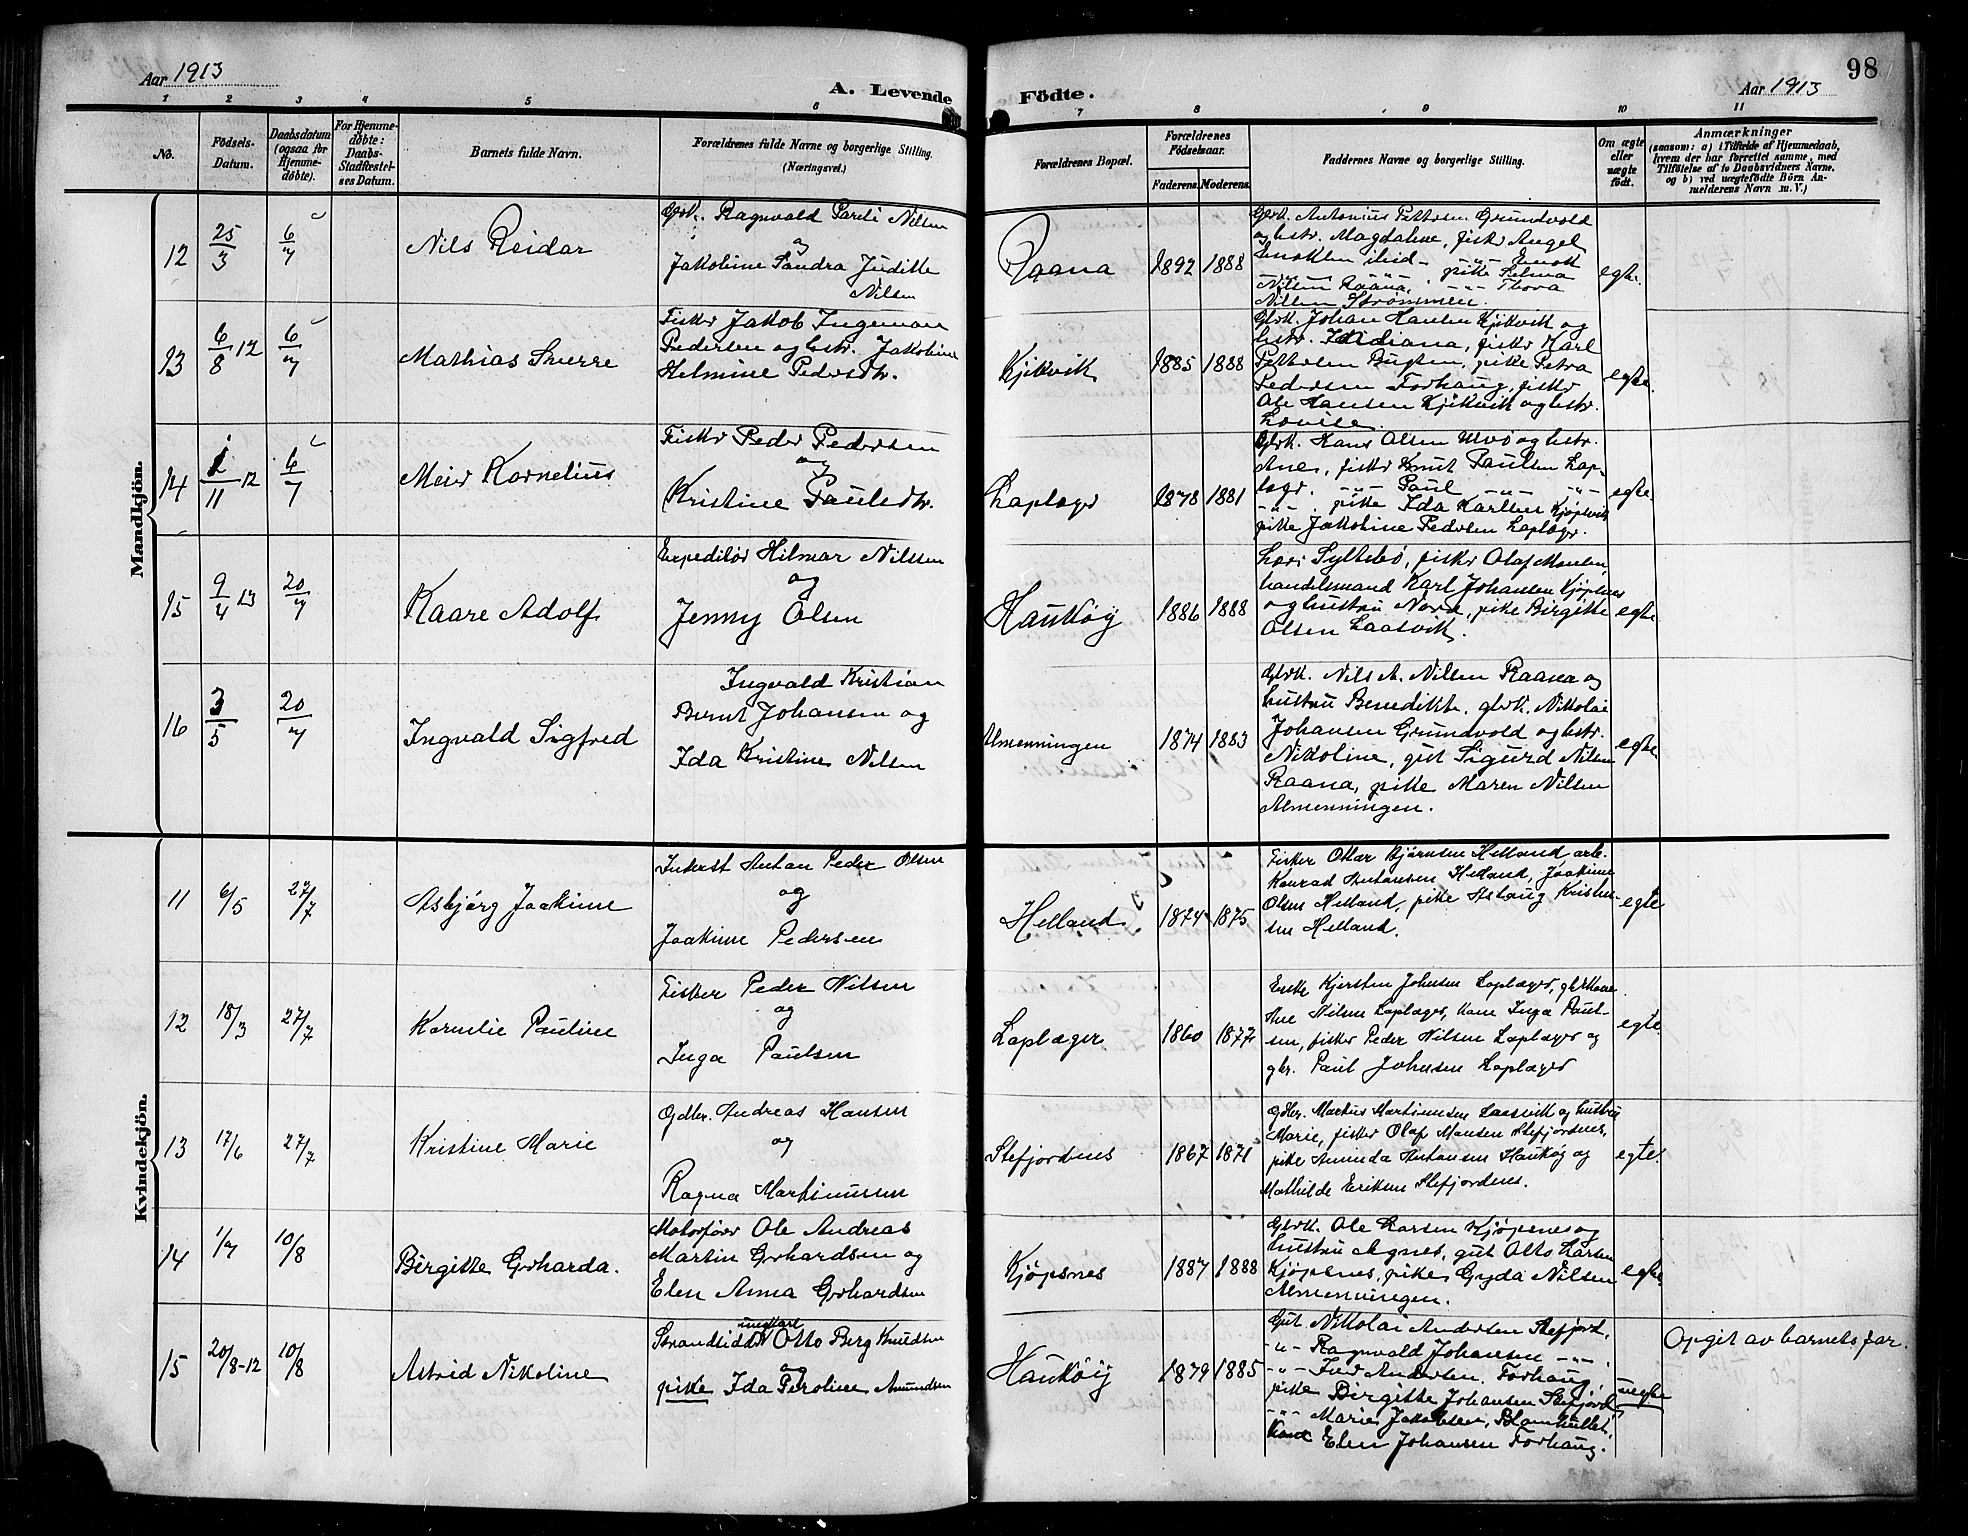 Aar 1913
A. Levende Födte.
Aar 1913
98
1 2 3 4 5 6 7 8 9 10 11
No.
Födsels-
Datum.
Daabsdatum
(ogsaa for
Hjemme-
döbte).
For Hjemme-
döbte:
Daabs-
Stadfæstel-
ses Datum.
Barnets fulde Navn.
Forældrenes fulde Navne og borgerlige Stilling.
(Næringsvei.)
Forældrenes Bopæl.
Forældrenes
Födselsaar.
Faderens. Moderens.
Faddernes Navne og borgerlige Stilling.
Om ægte
eller
uægte
födt.
Anmærkninger
(saasom: a) i Tilfælde af Hjemmedaab,
hvem der har forrettet samme, med
Tilföielse af to Daabsvidners Navne,
og b) ved uægtefödte Börn An-
melderens Navn m. V.)
Mandkjön.
12
25/3
6/7
Nils Reidar
Gbrk. Ragnvald Pareli Nilsen
og
Jakobine Sandra Juditte
Nilsen
Raana
1892 1888
Gbrk. Antonius Pettersen Grundvold
og hstr. Magdalene, fiskr Angel
Enoksen ibid - " - Enok
" pike Selma
Nilsen Raana, " - " Thora
Nilsen Strømmen.
egte.
13
6/8 12
6/7
Mathias Sverre
Fiskr Jakob Ingeman
Pedersen og hstr. Jakobine
Helmine Pedersdtr.
Kjikvik
1885 1888
Gbrk. Johan Hansen Kjikvik og
hstr. Ididiana, fiskr Karl
Pettersen Bugten, pike Petra
Pedersen Forhaug, fiskr
Ole Hansen Kjikvik og hstr.
Lovise.
egte.
14
1/11 12
6/7
Meier Kornelius
Fiskr Peder Pedersen
og
Kristine Paulsdtr.
Laplægr
1878 1881
Gbrk. Hans Olsen Ulvø og hstr.
Ane, fiskr Knut Paulsen Lap-
lægr. " - " Paul " - " " - "
" - " . pike Ida Karlsen Kjøpsvik
pike Jakobine Pedersen Laplægr.
egte
15
9/4 13
20/7
Kaare Adolf
Expeditør Hilmar Nilssen
og
Jenny Olsen
Haukøy
1886 1888
Lars Syltebø, fisker Olaf Monsen,
handelsmand Karl Johansen Kjøpsnes
og hustru Nora, pike Birgitte
Olsen Laasvik.
egte
16
3/5
20/7
Ingvald Sigfred
Ingvald Kristian
Bernt Johansen og
Ida Kristine Nilsen
Almenningen
1874 1883
Gbrk. Nils A. Nilsen Raana og
hustru Benedikte, gbrk. Nikolai
Johansen Grundvold og hstr.
Nikoline, gut Sigurd Nilsen
Raana, pike Maren Nilsen
Almenningen.
egte
Kvindekjön.
11
6/5
27/7
Asbjørg Joakime
Inderst Anton Peder Olsen
og
Joakime Pedersen
Helland
1874 1875
Fisker Ottar Bjørnsen Helland, arb.
Konrad Antonsen Helland, Joakime
Olsen Helland, pike Aslaug Kristen-
sen Helland.
egte
12
18/3
27/7
Kornelie Pauline
Fisker Peder Nilsen
og
Inga Paulsen
Laplæger
1860 1877
Enke Kjersten Johnsen Laplæger, gbrkone
Ane Nilsen Laplæger, kone Inga Paul-
sen, fisker Peder Nilsen Laplæger og
gbr. Paul Johnsen Laplæger
egte
13
17/6
27/7
Kristine Marie
Gdbr. Andreas Hansen
og
Ragna Martinussen
Stefjordnes
1867 1871
Gdbr. Markus Martinussen Laasvik og hustru
Marie, fisker Olaf Monsen Stefjordnes,
pike Aminda Antonsen Haukøy og
Mathilde Eriksen Stefjordnes.
egte.
14
1/7
10/8
Birgitte Gerharda.
Motorfører Ole Andreas
Martin Gerhardsen og
Elen Anna Gerhardsen
Kjøpsnes
1887 1888
Gbrk. Ole Larsen Kjøpsnes og
hustru Agnes, gut Otto Larsen
Kjøpsnes, pike Gyda Nilsen
Almenningen.
egte
15
20/8-12
10/8
Astrid Nikoline
ungkarl
Strandsidder Otto Berg Knudsen
og
pike Ida Peroline Amundsen
Haukøy
1879 1885
Gut Nikolai Andersen Stefjord,
" - " Ragnvald Johansen " - " .
" - " Ivar Andersen. Forhaug,
pike Birgitte Johansen Stefjord,
" - " Marie Jakobsen,
Kone Elen Johansen Forhaug.
uegte
Opgit av barnets far.